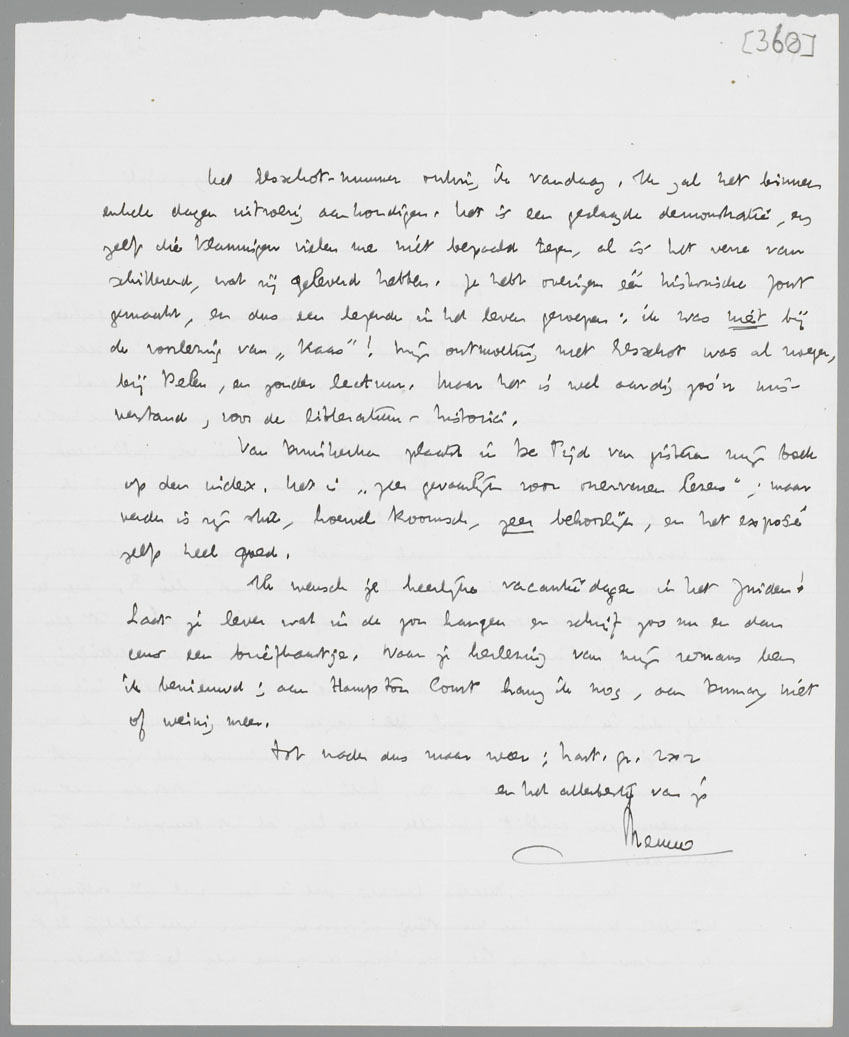 [368]
Het Elsschot-nummer ontving ik vandaag. Ik zal het binnen
enkele dagen uitvoerig aankondigen. Het is een geslaagde demonstratie, en
zelfs die Vlamingen vielen me niet bepaald tegen, al is het verre van
schitterend, wat zij geleverd hebben. Je hebt overigens één historische fout
gemaakt, en dus een legende in het leven geroepen: ik was niet bij
de voorlezing van „Kaas"! Mijn ontmoeting met Elsschot was al vroeger,
bij Pelen, en zonder lectuur. Maar het is wel aardig zoo'n mis-
verstand, voor de litteratuur-historici.
Van Duinkerken plaatst in De Tijd van gisteren mijn boek
op den index. Het is „zeer gevaarlijk voor onervaren lezers"; maar
verder is zijn stuk, hoewel Roomsch, zeer behoorlijk, en het exposé
zelfs heel goed.
Ik wensch je heerlijke vacantiedagen in het Zuiden!
Laat je lever wat in de zon hangen en schrijf zoo nu en dan
eens een briefkaartje. Naar je herlezing van mijn romans ben
ik benieuwd; aan Hampton Court hang ik nog, aan Dumay niet
of weinig meer.
Tot nader dus maar weer; hart. gr. 2 x 2
en het allerbeste van je
Menno